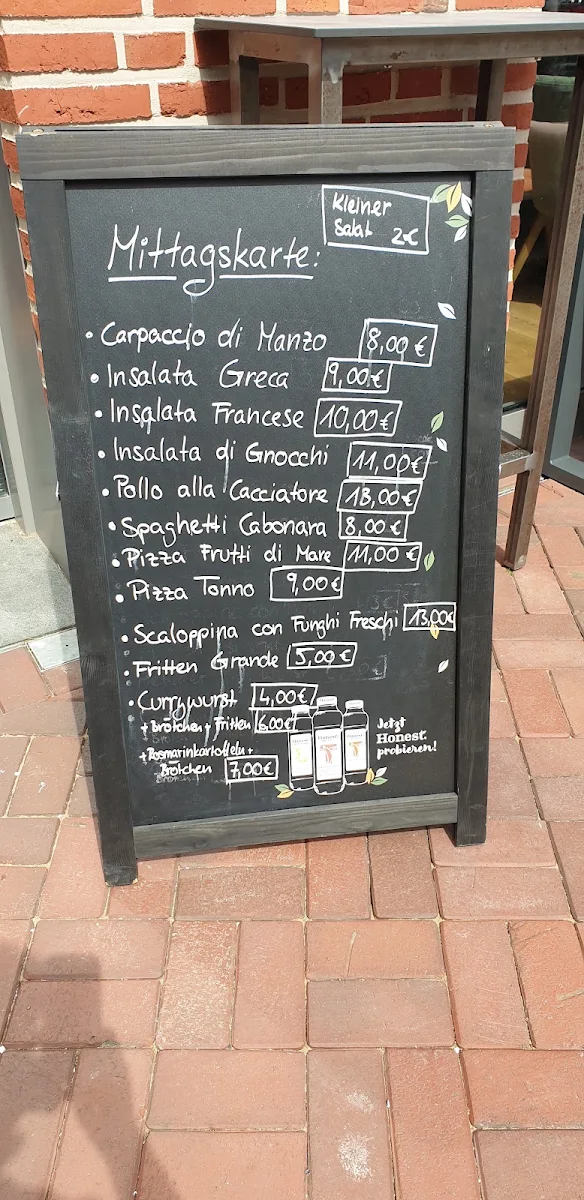 Kleiner
Salat 2€
Mittagskarte:
• Carpaccio di Manzo 8,00 €
• Insalata Greca 9,00€
• Insalata Francese 10,00€
• Insalata di Gnocchi 11,00€
• Pollo alla Cacciatore 13,00€
• Spaghetti Cabonara 8,00 €
• Pizza Frutti di Mare 11,00 €
• Pizza Tonno 9,00€
• Scaloppina con Funghi Freschi 13,00€
• Fritten Grande 5,00 €
• Currywurst 4,00€
+ Brötchen + Fritten 6,00€
+ Rosmarinkartoffeln +
Brötchen 7,00€
Jetzt
Honest.
probieren!